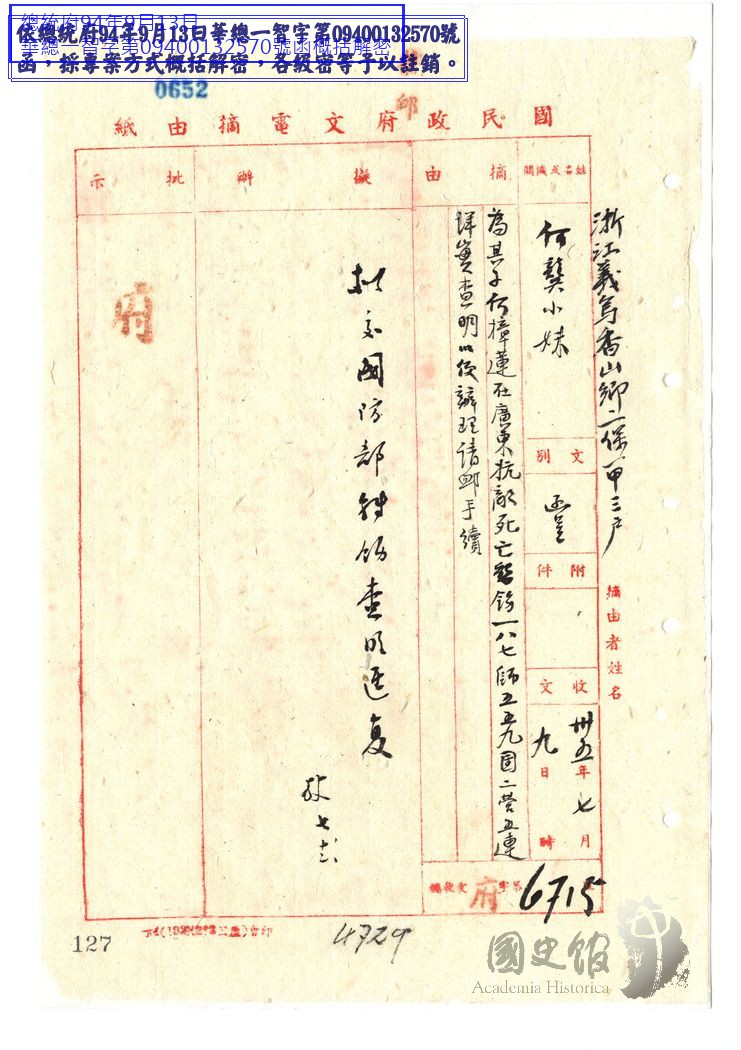 總統府94年9月13日
華總一智字第09400132570號函概括解密
依總統府94年9月13日華總一智字第09400132570號
函，採專案方式概括解密，各級密等予以註銷。
0652
郵
國民政府文電摘由紙
浙江義烏香山鄉二保一甲三戶
摘由者姓名
姓名或機關
何龔小妹
文別
函呈
附件
收文
卅五年七月
九日時
摘由
為其子何樟蓮在廣東抗敵死亡懇飭一八七師五五九團二營五連
詳實查明以便辦理請卹手續
擬辦
擬交國防部轉飭查明逕复
七
批示
府
總收文府字第6715
127
4729
國史館
Academia Historica